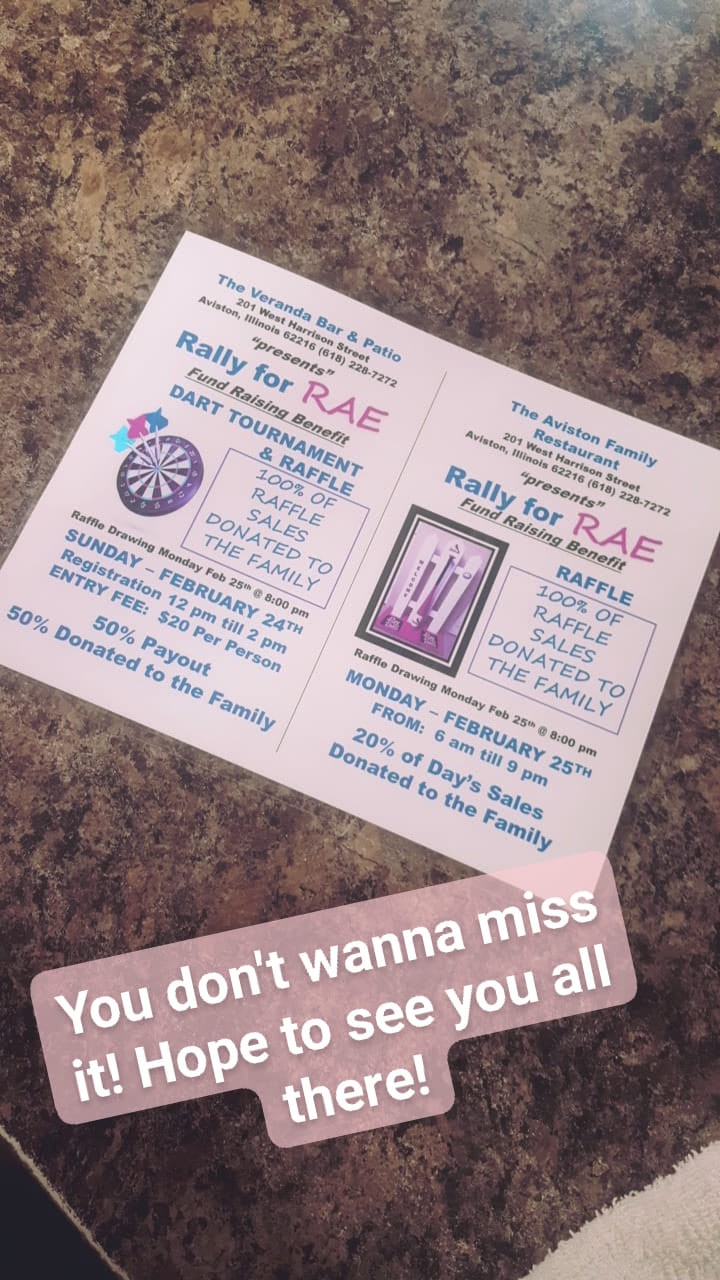 The Veranda Bar & Patio
201 West Harrison Street
Aviston, Illinois 62216 (618) 228-7272
"presents"
Rally for RAE
Fund Raising Benefit
DART TOURNAMENT
& RAFFLE
100% OF
RAFFLE
SALES
DONATED TO
THE FAMILY
Raffle Drawing Monday Feb 25th @ 8:00 pm
SUNDAY – FEBRUARY 24TH
Registration 12 pm till 2 pm
ENTRY FEE: $20 Per Person
50% Payout
50% Donated to the Family
The Aviston Family
Restaurant
201 West Harrison Street
Aviston, Illinois 62216 (618) 228-7272
"presents"
Rally for RAE
Fund Raising Benefit
RAFFLE
100% OF
RAFFLE
SALES
DONATED TO
THE FAMILY
WELCOME
Raffle Drawing Monday Feb 25th @ 8:00 pm
MONDAY – FEBRUARY 25TH
FROM: 6 am till 9 pm
20% of Day's Sales
Donated to the Family
You don't wanna miss
it! Hope to see you all
there!